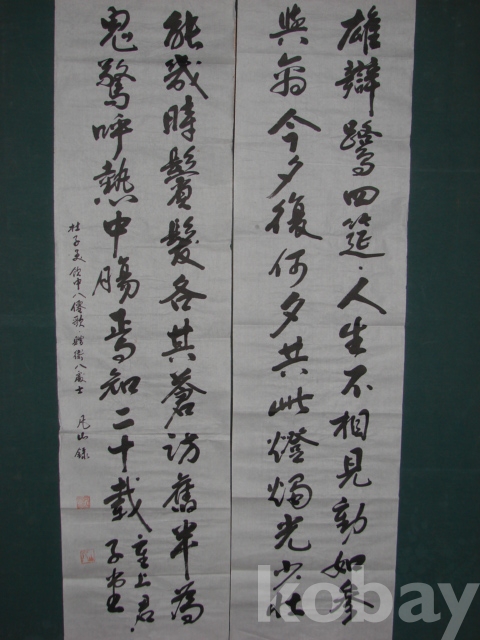 雄辯驚四筵人生不相見動如參
與商今夕復何夕共此燈燭光少壯
能幾時鬢髮各其蒼訪舊半為
鬼驚呼熱中腸焉知二十載重上君子堂
杜子美飲中八僊歌 贈衛八處士 凡山錄
kobay